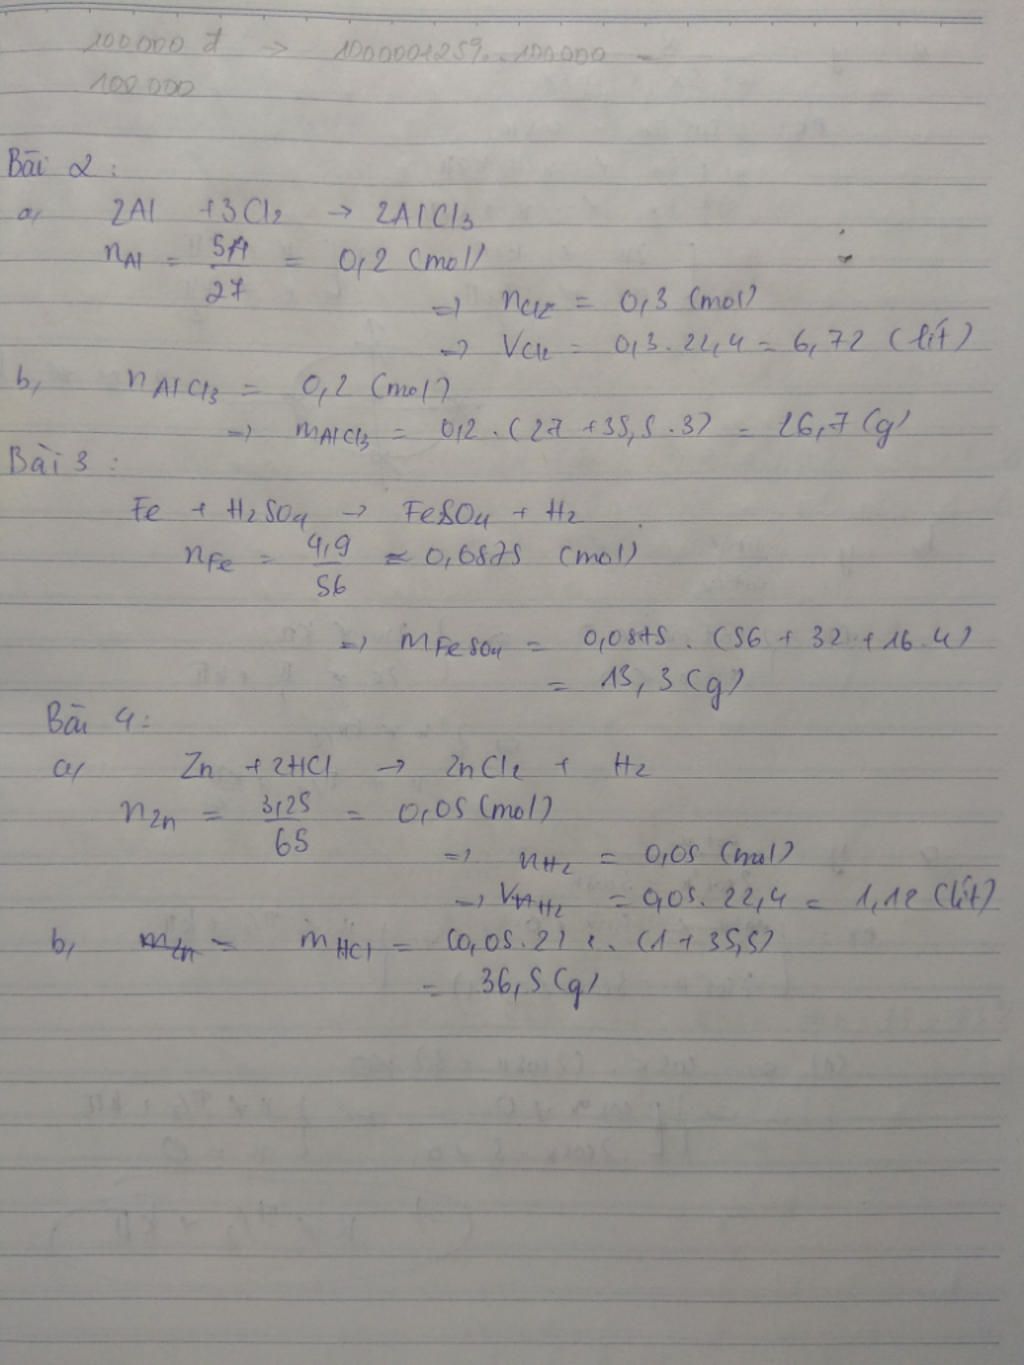 100000 đ → 100000125%..100000 -
100 000
Bài 2:
a, 2Al + 3Cl2 → 2AlCl3
nAl = 5,4/27 = 0,2 (mol)
=> nCl2 = 0,3 (mol)
=> VCl2 = 0,3.22,4 = 6,72 (lít)
b, nAlCl3 = 0,2 (mol)
=> mAlCl3 = 0,2.(27+35,5.3) = 26,7 (g)
Bài 3:
Fe + H2SO4 → FeSO4 + H2
nFe = 4,9/56 = 0,0875 (mol)
=> mFeSO4 = 0,0875.(56+32+16.4)
= 13,3 (g)
Bài 4:
a, Zn + 2HCl → ZnCl2 + H2
nZn = 3,25/65 = 0,05 (mol)
=> nH2 = 0,05 (mol)
=> VH2 = 0,05.22,4 = 1,12 (lít)
b, mZn = mHCl = (0,05.2).(1+35,5)
= 36,5 (g)